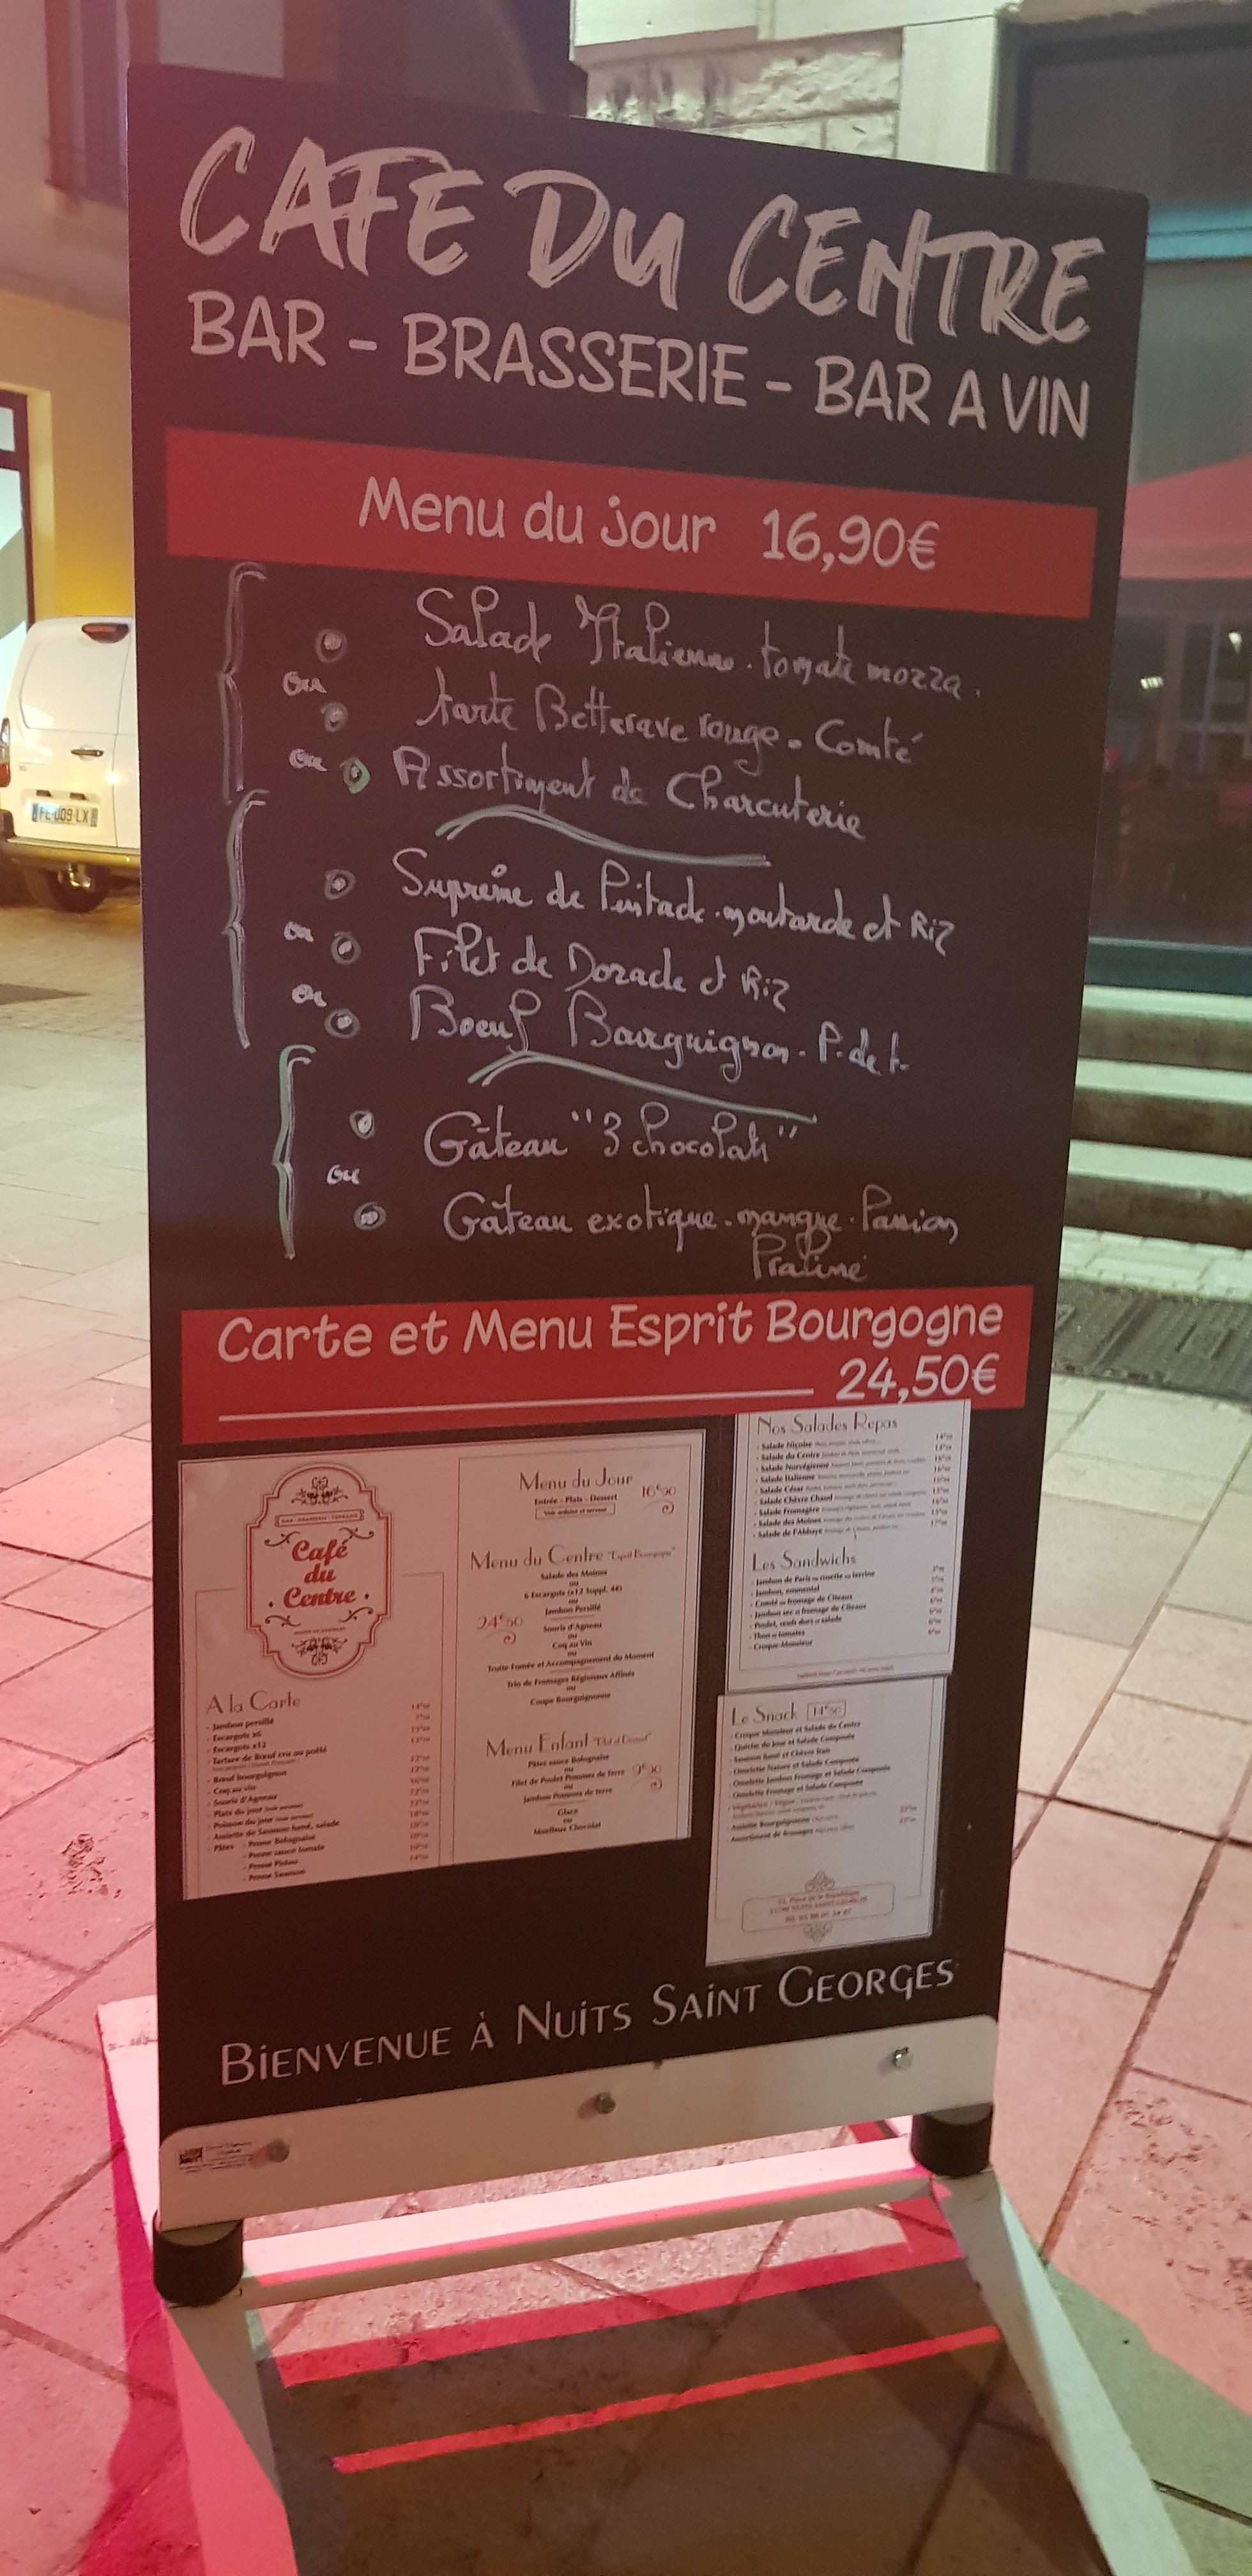 CAFE DU CENTRE
BAR - BRASSERIE - BAR A VIN
Menu du jour 16,90€
Salade Italienne - tomate mozza.
ou
tarte Betterave rouge - Comté
ou Assortiment de Charcuterie
Suprême de Pintade - moutarde et Riz
ou
Filet de Dorade et Riz
ou
Boeuf Bourguignon - P. de t.
Gâteau "3 chocolats"
ou
Gâteau exotique - mangue - Passion
Praliné
Carte et Menu Esprit Bourgogne
24,50€
BAR - BRASSERIE - TERRASSE
Café
du
Centre
A la Carte
- Jambon persillé
- Escargots x6
- Escargots x12
- Tartare de Bœuf cru ou poêlé
- Bœuf bourguignon
- Coq au vin
- Souris d'Agneau
- Plats du jour
- Poisson du jour
- Assiette de Saumon fumé, salade
- Pâtes - Penne Bolognaise
- Penne sauce tomate
- Penne Pistou
- Penne Saumon
Menu du Jour
Entrée - Plats - Dessert 16€90
Voir ardoise et serveur
Menu du Centre "Esprit Bourgogne"
Salade des Moines
ou
6 Escargots (x12 Suppl. 4€)
ou
Jambon Persillé
24€50
Souris d'Agneau
ou
Coq au Vin
ou
Truite Fumée et Accompagnement du Moment
Trio de Fromages Régionaux Affinés
ou
Coupe Bourguignonne
Menu Enfant "Plat et Dessert"
Pâtes sauce Bolognaise
ou
Filet de Poulet Pommes de terre 9€90
ou
Jambon Pommes de terre
Glace
ou
Moelleux Chocolat
Nos Salades Repas
- Salade Niçoise
- Salade du Centre
- Salade Norvégienne
- Salade Italienne
- Salade César
- Salade Chèvre Chaud
- Salade Fromagère
- Salade des Moines
- Salade de l'Abbaye
Les Sandwichs
- Jambon de Paris ou rosette ou terrine
- Jambon, emmental
- Comté ou fromage de Cîteaux
- Jambon sec et fromage de Cîteaux
- Poulet, oeufs durs et salade
- Thon et tomates
- Croque-Monsieur
Le Snack 14€50
- Croque Monsieur et Salade du Centre
- Quiche du Jour et Salade Composée
- Saumon fumé et Chèvre frais
- Omelette Nature et Salade Composée
- Omelette Jambon Fromage et Salade Composée
- Omelette Fromage et Salade Composée
- Végétarien / Végan
- Assiette Bourguignonne
- Assortiment de fromages
BIENVENUE À NUITS SAINT GEORGES